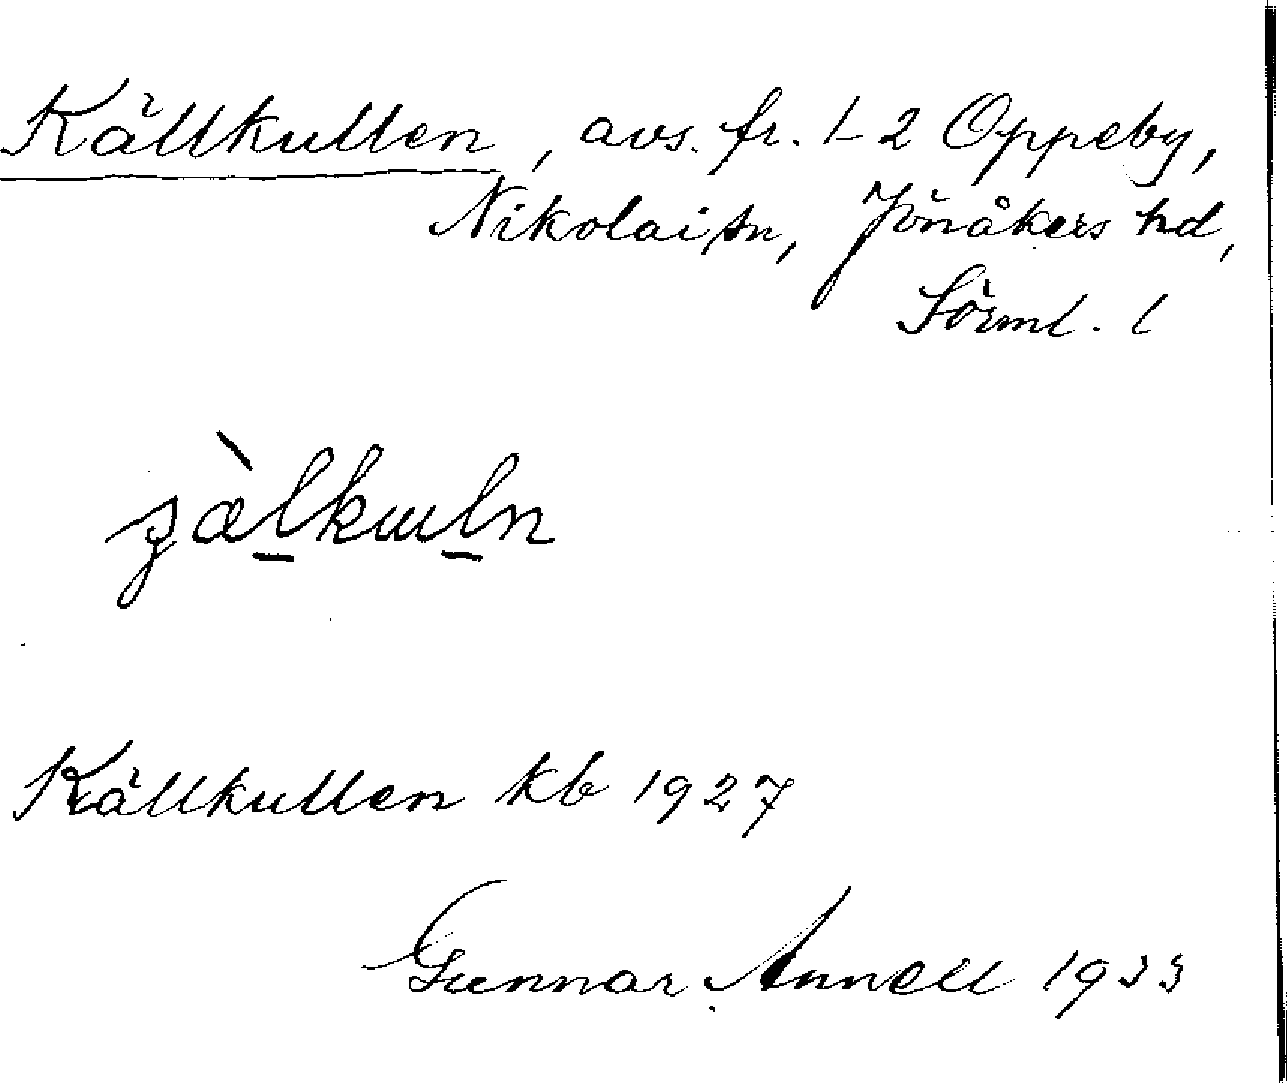 Källkullen, avs. fr. 1-2 Oppeby,
Nikolai sn, Jönåkers hd,
Sörml. l
Källkullen kb 1927
Gunnar Annell 1933